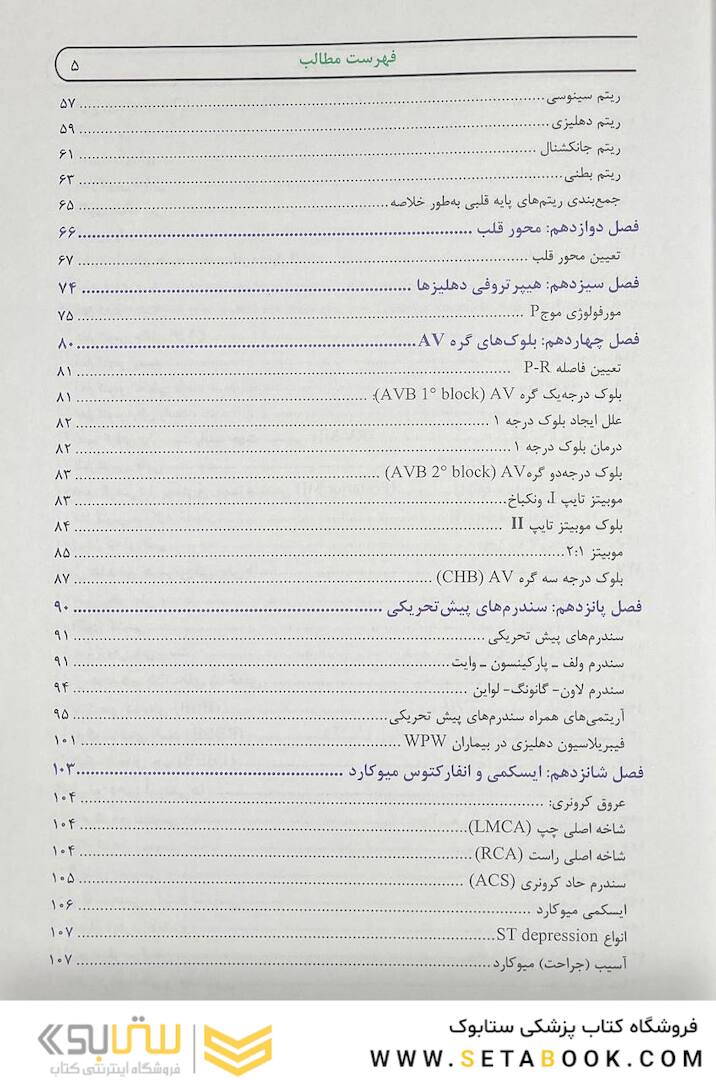 فهرست مطالب ۵
ریتم سینوسی ۵۷
ریتم دهلیزی ۵۹
ریتم جانکشنال ۶۱
ریتم بطنی ۶۳
جمع‌بندی ریتم‌های پایه قلبی به‌طور خلاصه ۶۵
فصل دوازدهم: محور قلب ۶۶
تعیین محور قلب ۶۷
فصل سیزدهم: هیپرتروفی دهلیزها ۷۴
مورفولوژی موج P ۷۵
فصل چهاردهم: بلوک‌های گره AV ۸۰
تعیین فاصله P-R ۸۱
بلوک درجه‌یک گره AV (AVB 1° block): ۸۱
علل ایجاد بلوک درجه ۱ ۸۲
درمان بلوک درجه ۱ ۸۲
بلوک درجه‌دو گره AV (AVB 2° block) ۸۳
موبیتز تایپ I، ونکباخ ۸۳
بلوک موبیتز تایپ II ۸۴
موبیتز ۲:۱ ۸۵
بلوک درجه سه گره AV (CHB) ۸۷
فصل پانزدهم: سندرم‌های پیش‌تحریکی ۹۰
سندرم‌های پیش تحریکی ۹۱
سندرم ولف ـ پارکینسون ـ وایت ۹۱
سندرم لاون- گانونگ- لواین ۹۴
آریتمی‌های همراه سندرم‌های پیش تحریکی ۹۵
فیبریلاسیون دهلیزی در بیماران WPW ۱۰۱
فصل شانزدهم: ایسکمی و انفارکتوس میوکارد ۱۰۳
عروق کرونری: ۱۰۴
شاخه اصلی چپ (LMCA) ۱۰۴
شاخه اصلی راست (RCA) ۱۰۴
سندرم حاد کرونری (ACS) ۱۰۵
ایسکمی میوکارد ۱۰۶
انواع ST depression ۱۰۷
آسیب (جراحت) میوکارد ۱۰۷
فروشگاه کتاب پزشکی ستابوک
WWW.SETABOOK.COM
ستابوک
فروشگاه اینترنتی کتاب